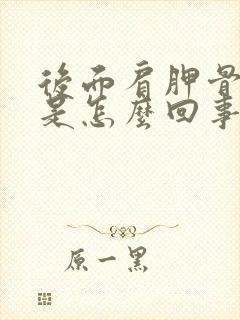 後面肩胛骨
是怎麼回事
原一黑